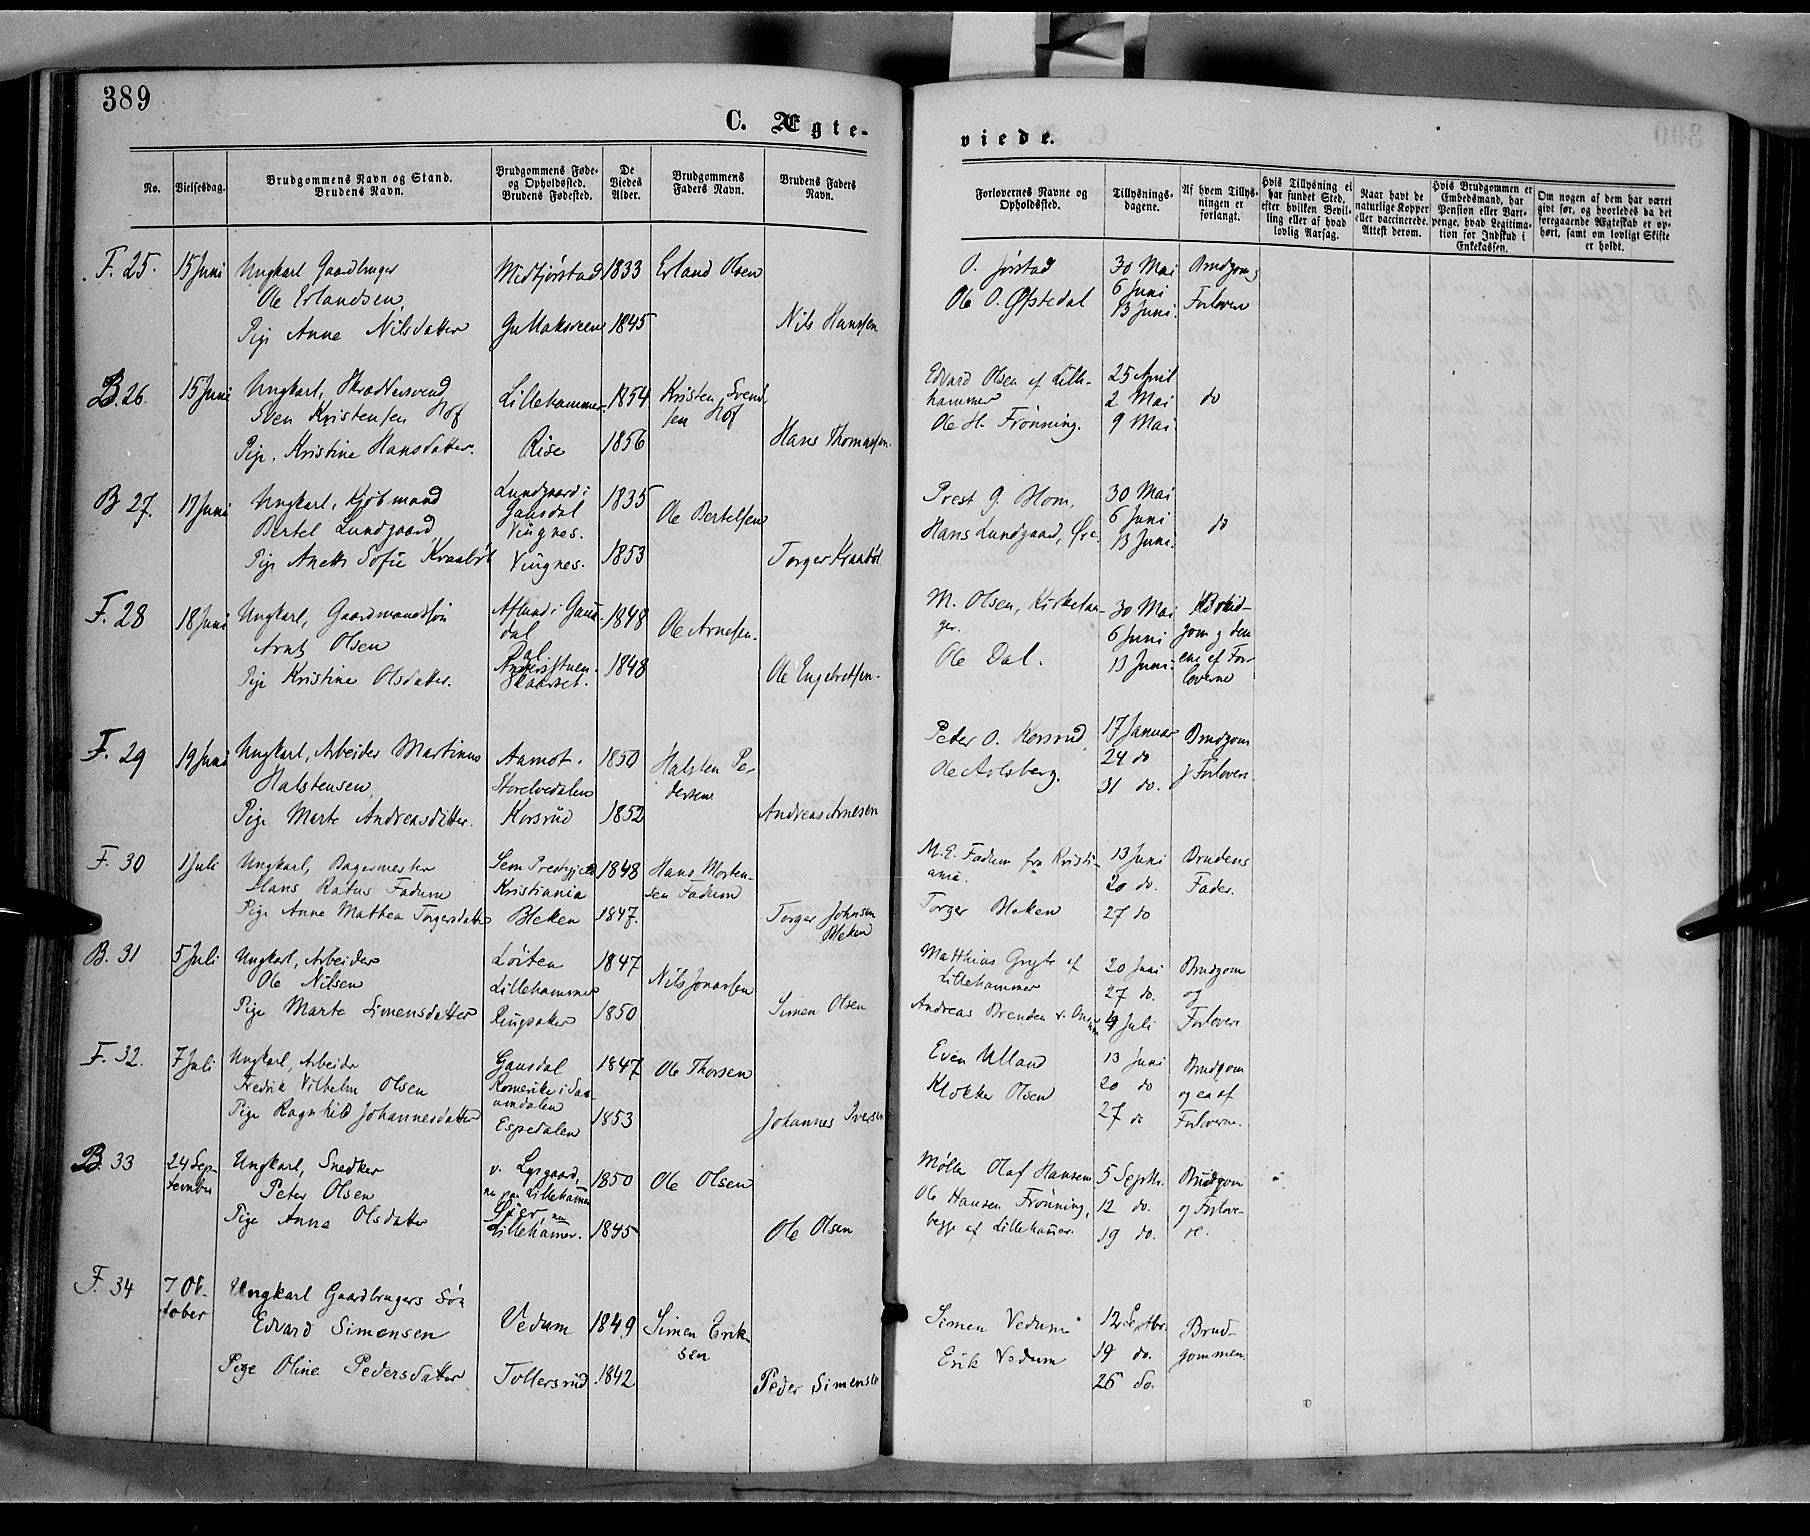 389
C. Ægte-
viede.
No.
Vielsesdag.
Brudgommens Navn og Stand.
Brudens Navn.
Brudgommens Føde-
og Opholdssted.
Brudens Fødested.
De
Viedes
Alder.
Brudgommens
Faders Navn.
Brudens Faders
Navn.
Forlovernes Navne og
Opholdssted.
Tillysnings-
dagene.
Af hvem Tillys-
ningen er
forlangt.
Hvis Tillysning ei
har fundet Sted,
efter hvilken Bevil-
ling eller af hvad
lovlig Aarsag.
Naar havt de
naturlige Kopper
eller vaccinerede.
Attest derom.
Hvis Brudgommen er
Embedsmand, har
Pension eller Vart-
penge, hvad Legitima-
tion for Indskud i
Enkekassen.
Om nogen af dem har været
givt før, og hvorledes da det
foregaaende Ægteskab er op-
hørt, samt om lovligt Skifte
er holdt.
F. 25.
15 Juni
Ungkarl Gaardbruger
Ole Erlandsen
Pige Anne Nilsdatter
Midtjørstad
1833
1845
Erland Olsen
Nils Hanssen
O. Jørstad
Ole O. Øfstedal
30 Mai
6 Juni
13 Juni.
Brudgom og
Forlover
B. 26.
15 Juni
Ungkarl, Skrædersvend
Sven Kristensen Hof
Pige. Kristine Hansdatter.
Lillehammer
Rise
1854
1856
Kristen Svend-
sen Hof
Hans Thomassen.
Edvard Olsen af Lille-
hammer
Ole H. Frønning.
25 April
2 Mai
9 Mai
do
B 27.
17 Juni
Ungkarl, Kjøbmand
Bertel Lundgaard
Pige Anette Sofie Kraabøl
Lundgaard i
Gausdal
Vingnes.
Vingnes.
1835
1853
Ole Bertelsen
Torger Kraabøl
Prest G. Blom.
Hans Lundgaard, Øre.
30 Mai
6 Juni
13 Juni.
do
F. 28
18 Juni
Ungkarl, Gaardmandssøn
Arnt Olsen
Pige Kristine Olsdatter.
Aflund i Gaus-
dal
Dal.
Skaarset.
1848
1848
Ole Arnesen.
Ole Engebretsen.
M. Olsen, Kirkestan-
ger.
Ole Dal.
30 Mai
6 Juni
13 Juni.
Brud-
gom og den
ene af For-
loverne
F. 29
19 Juni
Ungkarl, Arbeider Martinus
Halstensen
Pige Marte Andreasdatter.
Aamot.
Storelvedalen
Korsrud
1850
1852
Halsten Pe-
dersen
Andreas Arnesen
Peter O. Korsrud
Ole Aolsberg.
17 Januar
24 do
31 do.
Brudgom
og Forlovere
F. 30
1 Juli
Ungkarl, Bagermester
Hans Ratus Fadum
Pige Anne Mathea Torgersdatter
Sem Prestgjeld
Kristiania
Bleken
1848
1847.
Hans Morten-
sen Fadum
Torger Johnsen
Bleken
M. E. Fadum fra Kristi-
ania.
Torger Bleken
13 Juni
20 do.
27 do
Brudens
Fader.
B. 31
5 Juli
Ungkarl, Arbeider
Ole Nilsen
Pige Marte Simensdatter
Løiten
Lillehammer
Ringsaker
1847
1850
Nils Jonassen
Simen Olsen
Matthias Gryte af
Lillehammer
Andreas Brenden
20 Juni
27 do.
4 Juli
Brudgom
og
Forlovere
F. 32.
7 Juli
Ungkarl, Arbeider
Fredrik Vilhelm Olsen
Pige Ragnhild Johannesdatter
Gausdal
Espedalen
1847
1853
Ole Thorsen
Johannes Iversen
Even Ulland
Klokker Olsen
13 Juni
20 do
27 do
Brudgom
og en af
Forloverne.
B. 33
24 Sep-
tember
Ungkarl, Snedker
Peter Olsen
Pige Anne Olsdatter
v. Lysgaard,
nu paa Lillehammer
Lillehammer.
1850
1845
Ole Olsen
Ole Olsen
Møller Olaf Hansen
Ole Hansen Frønning,
begge af Lillehammer.
5 Septbr.
12 do.
19 do.
Brudgom
og Forlove-
re.
F. 34
7 Ok-
tober
Ungkarl Gaardbrugers Søn
Edvard Simensen
Pige Oline Pedersdatter
Vedum
Tollersrud
1849
1842
Simen Erik-
sen
Peder Simensen
Simen Vedum
Erik Vedum
12 Septbr.
19 do.
26 do.
Brud-
gommen